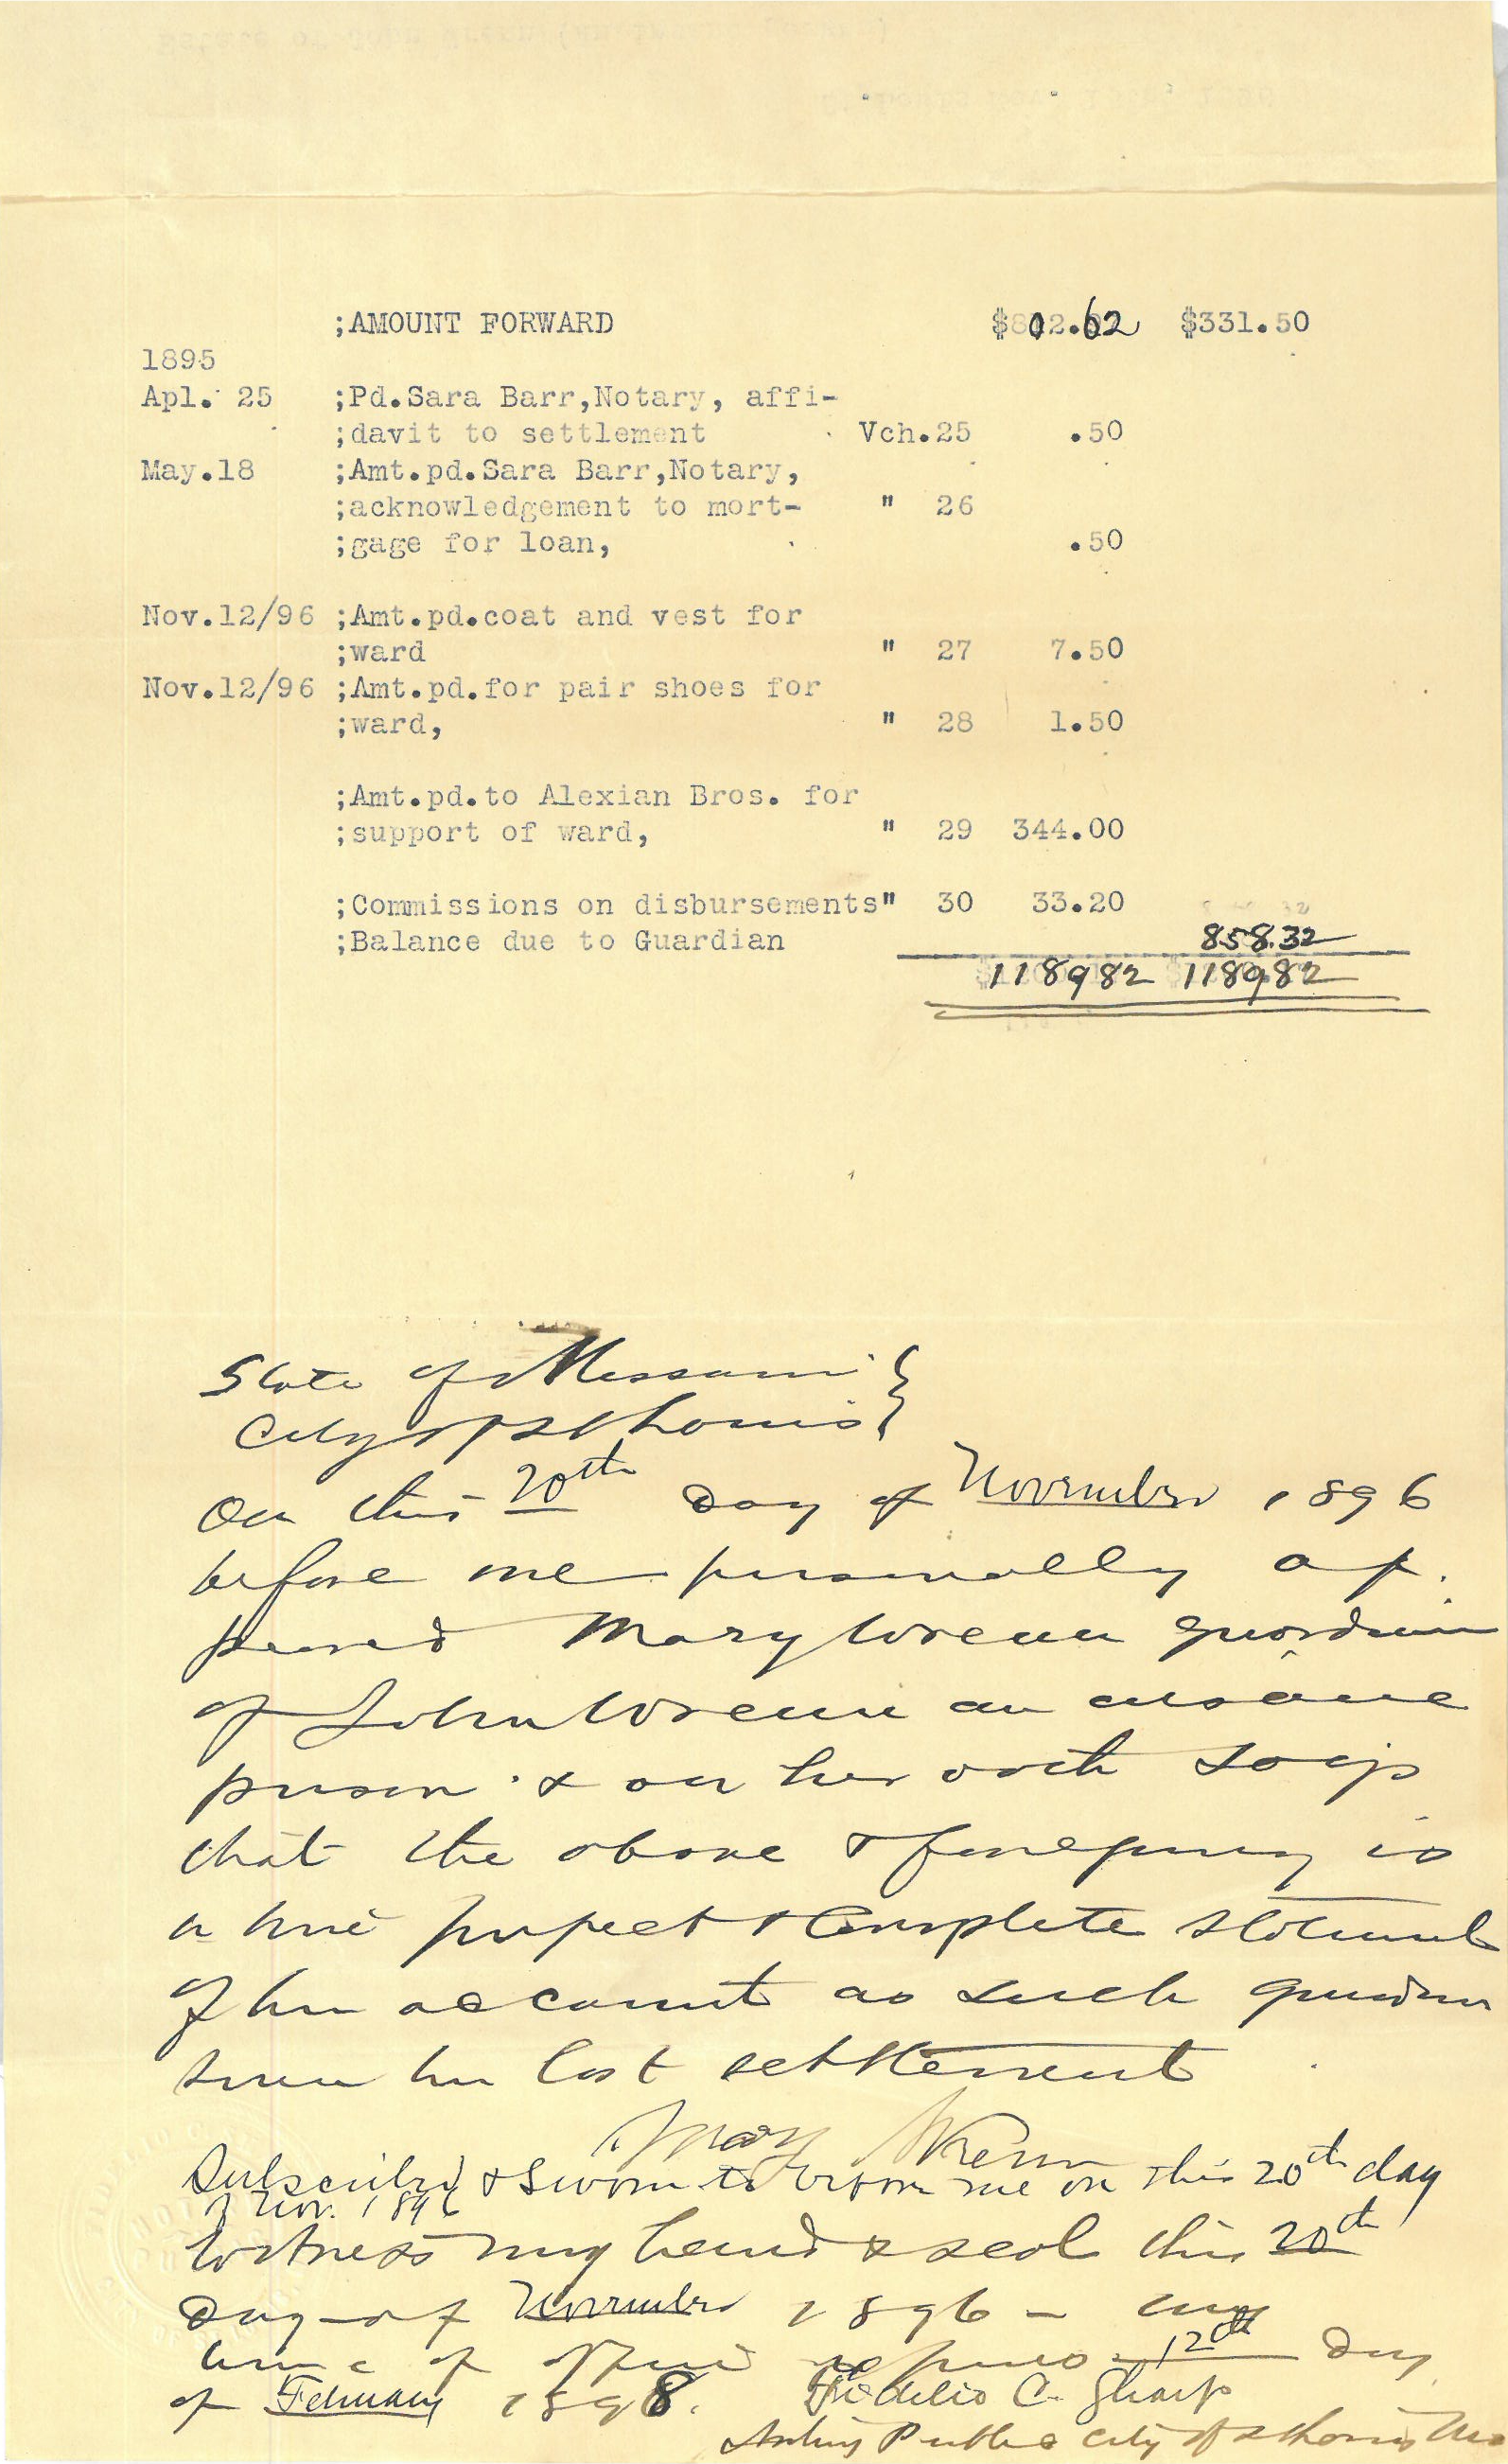 ;AMOUNT FORWARD $802.62 $331.50
1895
Apl. 25 ;Pd.Sara Barr,Notary, affi-
;davit to settlement Vch.25 .50
May.18 ;Amt.pd.Sara Barr,Notary,
;acknowledgement to mort- " 26
;gage for loan, .50
Nov.12/96 ;Amt.pd.coat and vest for
;ward " 27 7.50
Nov.12/96 ;Amt.pd.for pair shoes for
;ward, " 28 1.50
;Amt.pd.to Alexian Bros. for
;support of ward, " 29 344.00
;Commissions on disbursements" 30 33.20
;Balance due to Guardian 858.32
118982 118982
State of Missouri
City of St Louis
On this 20th Day of November 1896
before me personally ap.
peared Mary Wrenn guardian
of John Wrenn an insane
person & on her oath says
that the above & foregoing is
a true perfect & Complete statement
of her account as such guardian
since her last settlement
Mary Wrenn
Subscribed & Sworn to before me on this 20th day
of Nov. 1896
Witness my hand & seal this 20th
Day of November 1896 - my
term of office expires 12th Day
of February 1898. Fidelio C. Sharp
Notary Public City of St Louis Mo